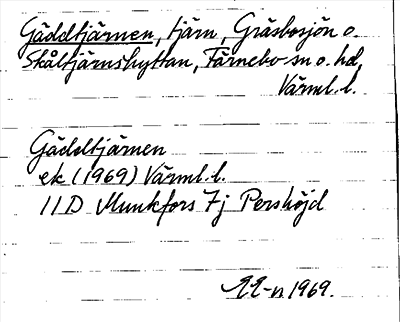 Gäddtjärnen, tjärn, Gräsbosjön o.
Skåltjärnshyttan, Färnebo sn o. hd,
Värml. l.
Gäddtjärnen
ek (1969) Värml. l.
11D Munkfors 7j Pershöjd
1969.